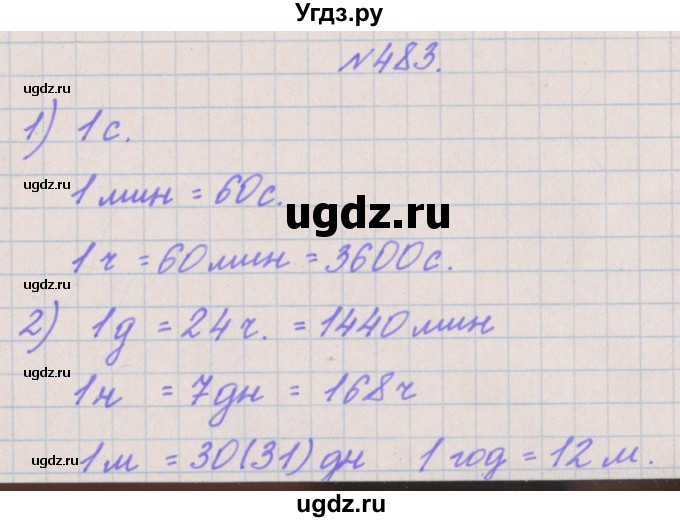 Угдз.ру
№483.
ugdz.ru
1) 1 с.
ugdz.ru
1 мин = 60 с.
ugdz.ru
1 ч = 60 мин = 3600 с.
ugdz.ru
2) 1 д = 24 ч. = 1440 мин
ugdz.ru
1 н = 7 дн = 168 ч
ugdz.ru
1 м = 30 (31) дн 1 год = 12 м.
ugdz.ru